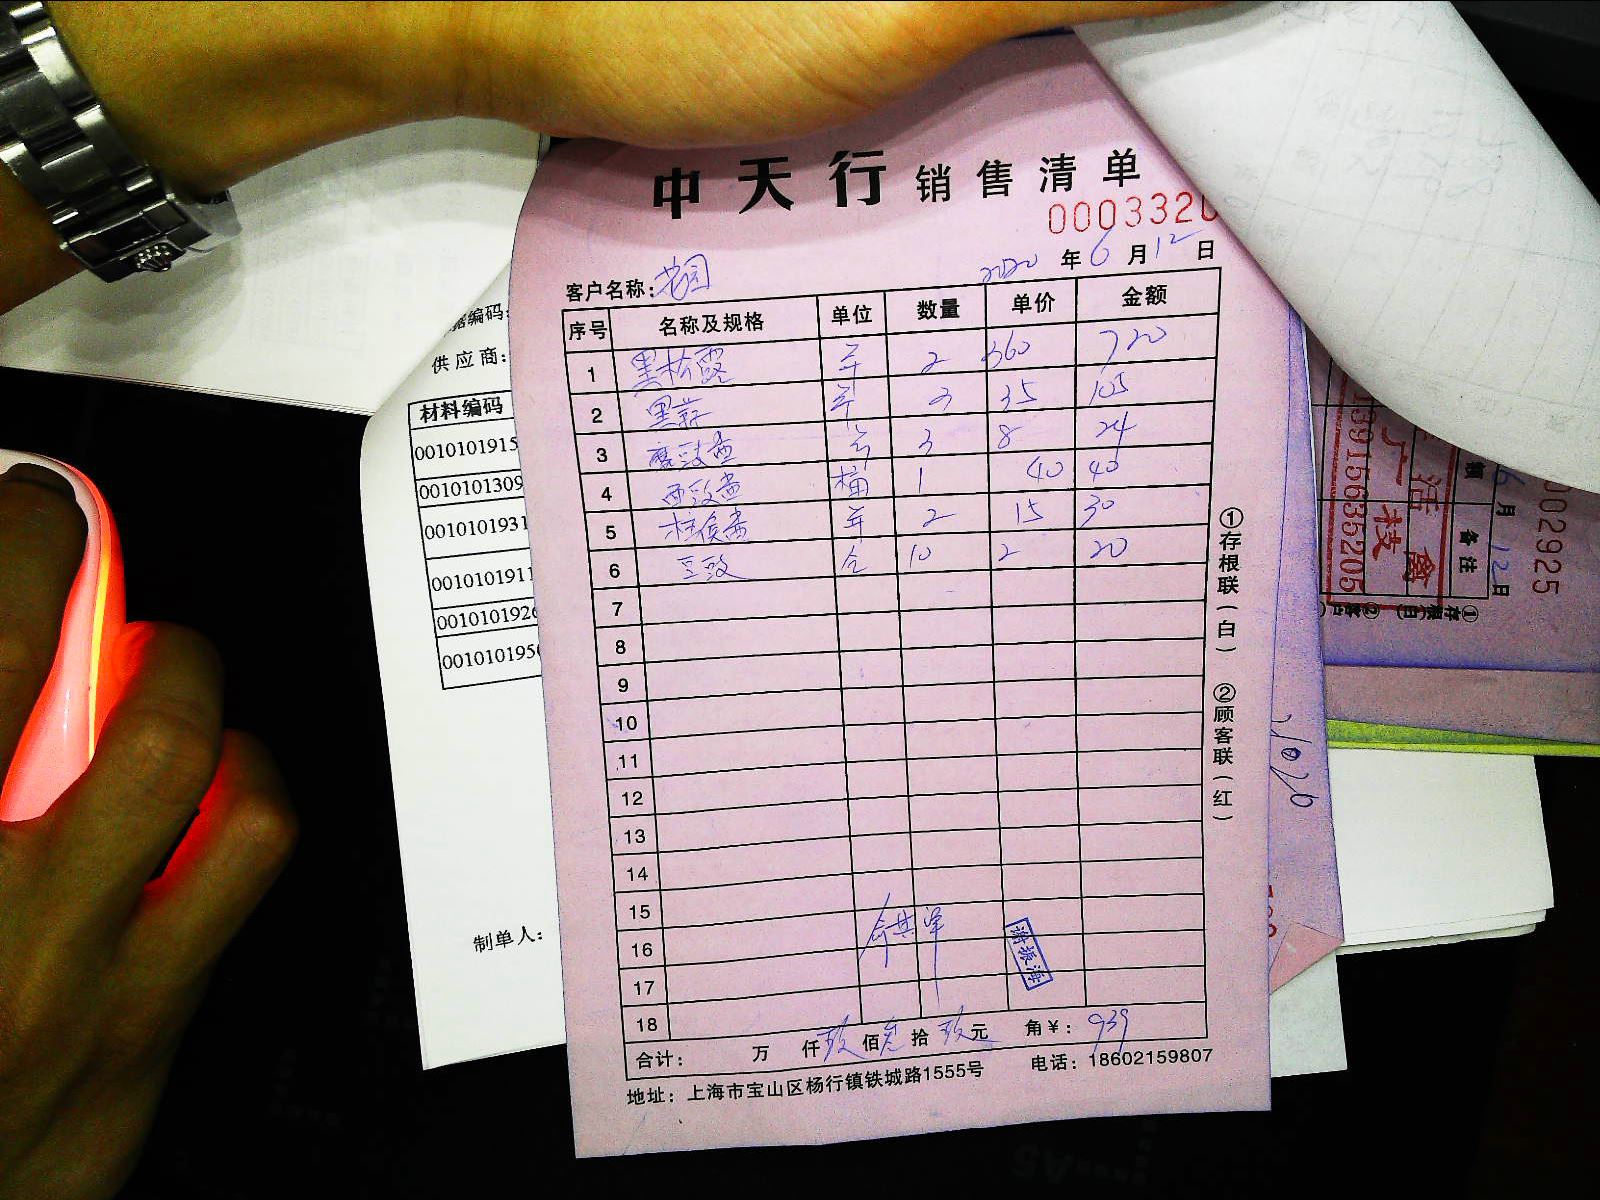 中天行 销售清单
0003320
2020 年 6 月 12 日
客户名称:
序号 名称及规格 单位 数量 单价 金额
1 黑松露 2 360 720
2 黑蒜 3 35 105
3 3 8 24
4 桶 1 40 40
5 柱侯酱 2 15 30
6 豆豉 10 2 20
7
8
9
10
11
12
13
14
15
16
17
18
谢振海
合计: 万 仟 玖 佰 叁 拾 玖 元 角 ¥: 939
地址: 上海市宝山区杨行镇铁城路1555号 电话: 18602159807
①存根联(白) ②顾客联(红)
据编码:
供应商:
材料编码
0010101915
0010101309
001010193
001010191
001010192
001010195
制单人:
002925
6 月 12 日
备注
活禽
13915635205
2020